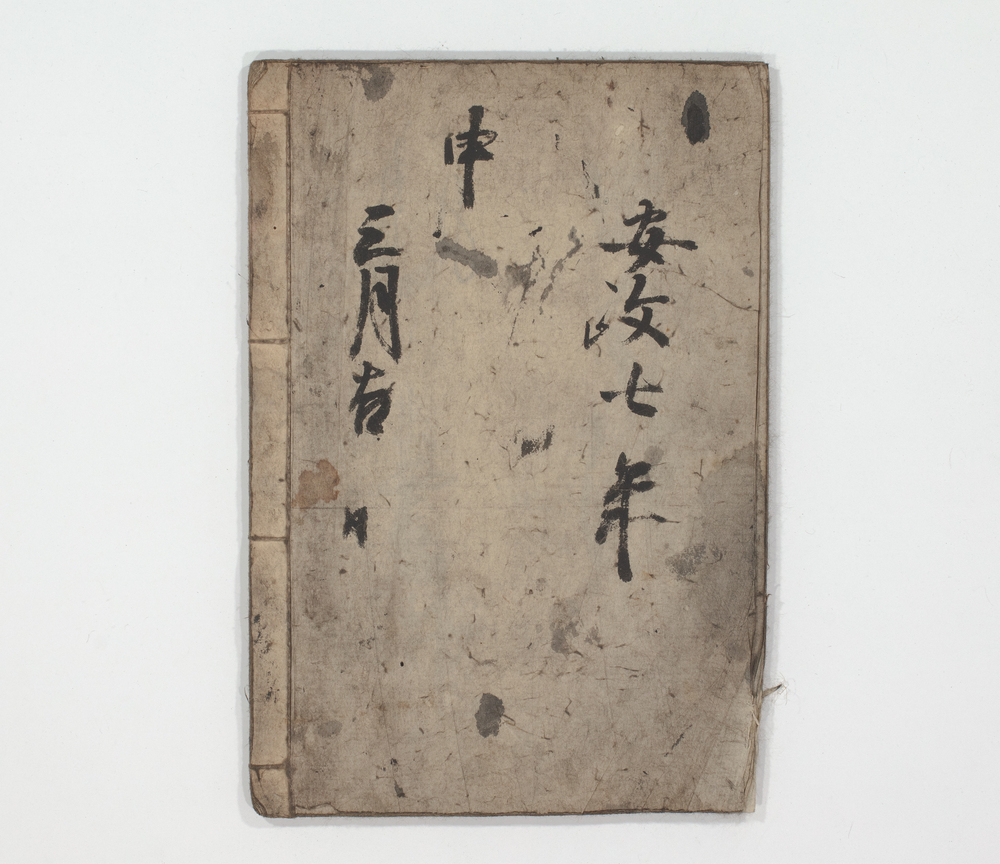 安政七年
申
三月吉日